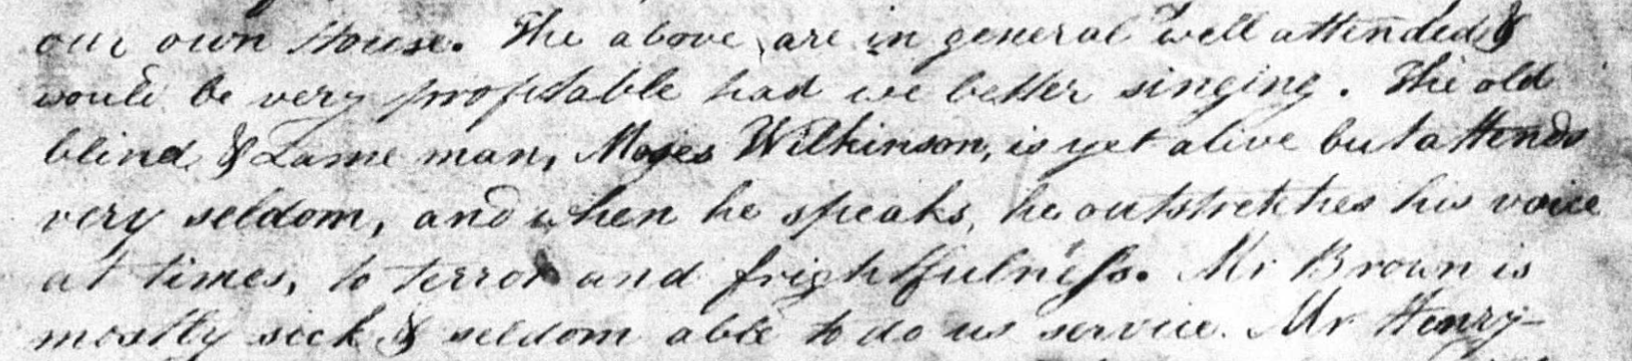 our own House. The above are in general well attended &
would be very profitable had we better singing. The old
blind & Lame man, Moses Wilkinson, is yet alive but attends
very seldom, and when he speaks, he outstretches his voice
at times, to terror and frightfulness. Mr Brown is
mostly sick & seldom able to do us service. Mr Henry